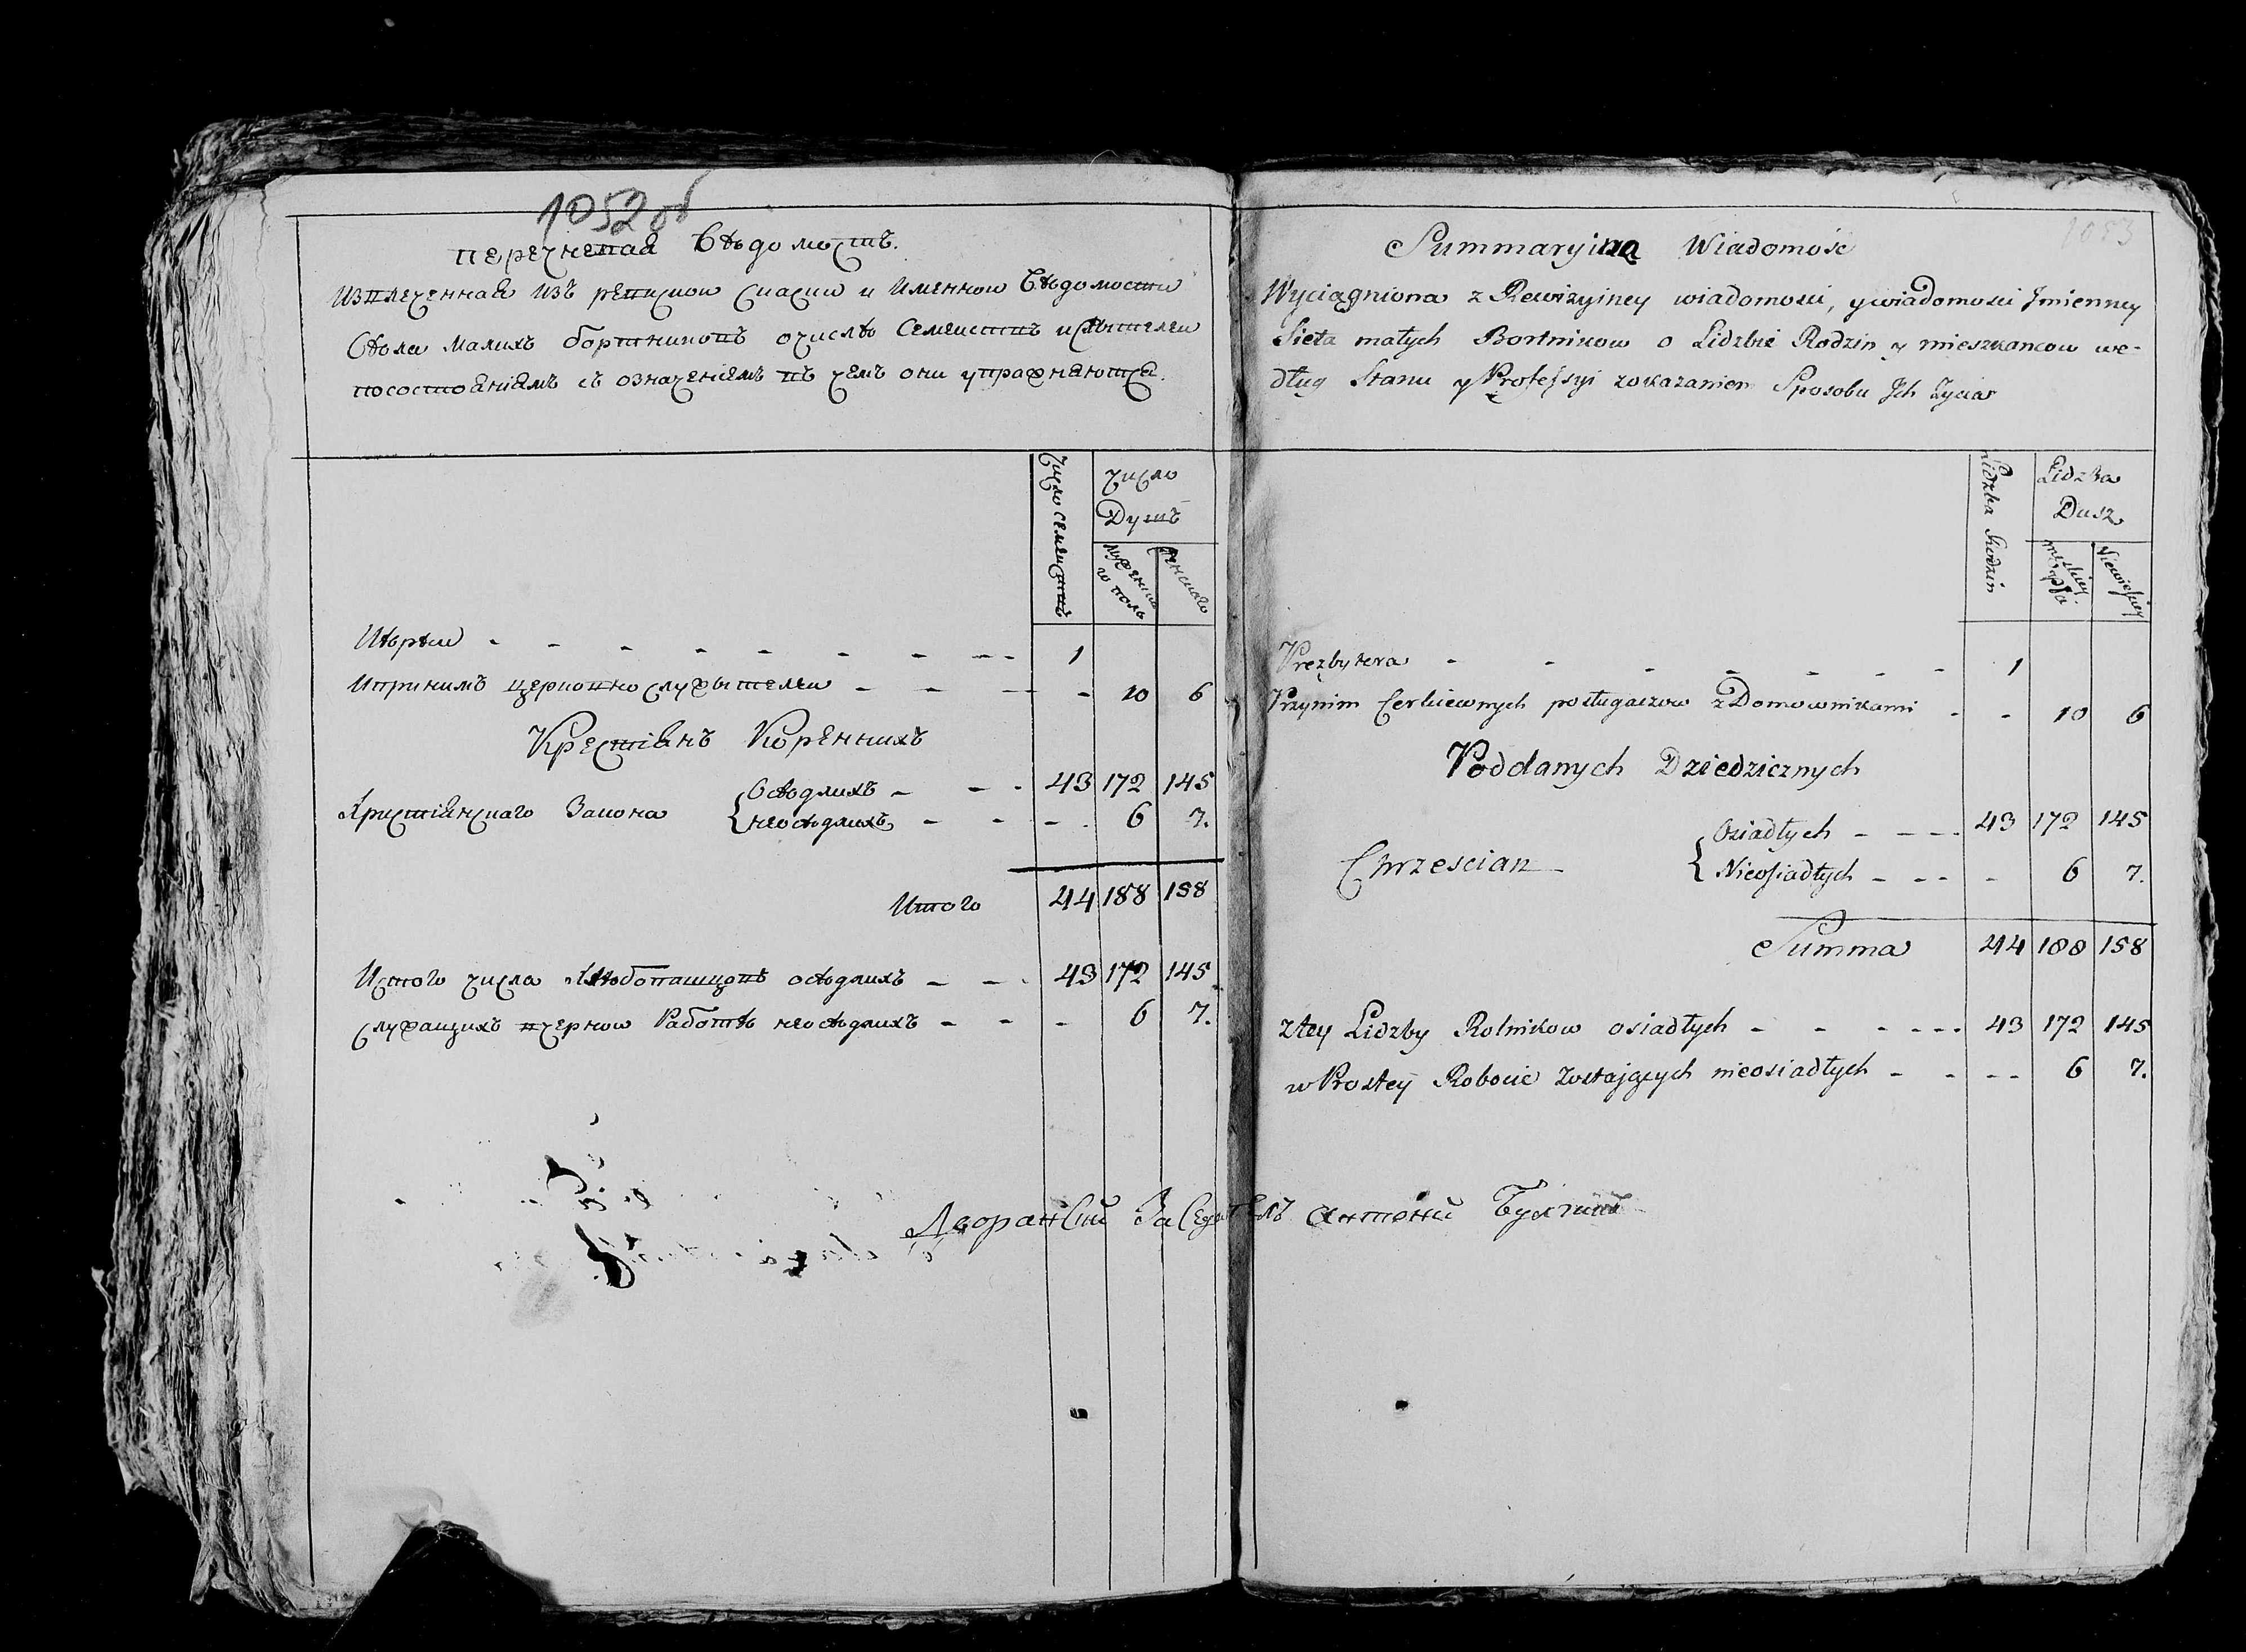 1052 об
перечневая вѣдомость.
Извлеченная изъ ревизкои скаски и Именнои вѣдомости
Сѣла Малихъ бортниковъ очислѣ Семеиствъ ижытелеи
посостоянiямъ съ означенiемъ въ чемъ они упражняются.
Число семеиствъ
число
Душъ
мужеска
го полъ
женскаго
Иѣреи - - - - - - - - - 1
Ипринимъ церковно служытелеи - - - - 10 6
Крестiянъ Коренныхъ
Осѣдлихъ - - - 43 172 145
Христiянскаго Закона
неосѣдлихъ - - - - 6 7.
Итого 44 188 158
Истого числа хлѣбопашцовъ осѣдлихъ - - - 43 172 145
служащихъ вчерной Работѣ неосѣдлихъ - - - 6 7.
Дворянский Заседатель Антоний
1053
Summaryina Wiadomość
Wyciągniona z Rewizyiney wiadomosci, y wiadomosci Jmienney
Sieła małych Bortnikow o Lidzbie Rodzin y mieszkancow we-
dług Stanu y Professyi zokazaniem Sposobu Jch Zycia
Lidzba Rodzin
Lidzba
Dusz
Niewieskiey
Prezbytera - - - - - - - 1
Przynim Cerkiewnych posługaczow z Domownikami - - 10 6
Poddanych Dziedzicznych
Osiadłych - - - - 43 172 145
Chrzescian -
Nieosiadłych - - - - 6 7.
Summa 44 188 158
ztey Lidzby Rolnikow osiadłych - - - - - - 43 172 145
w Prostey Robocie Zostających nieosiadłych - - - - 6 7.